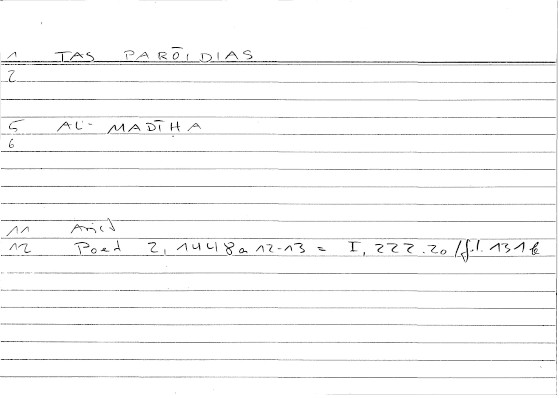 1 TAS PARŌIDIAS
2
5 AL-MADĪḤA
6
11 Arist
12 Poet 2, 1448a12-13 = I, 222.20/f.l. 131b